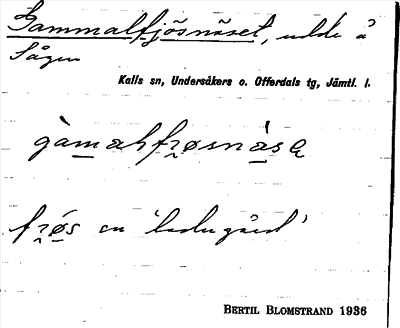 Gammalfjösnäset, udde å
Sågen
Kalls sn, Undersåkers o. Offerdals tg, Jämtl. l.
gàmalfrøsnàsa
frø̀s en 'ladugård'
BERTIL BLOMSTRAND 1936